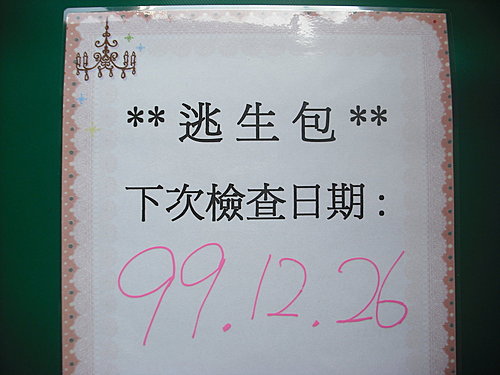 ** 逃生包 **
下次檢查日期：
99.12.26